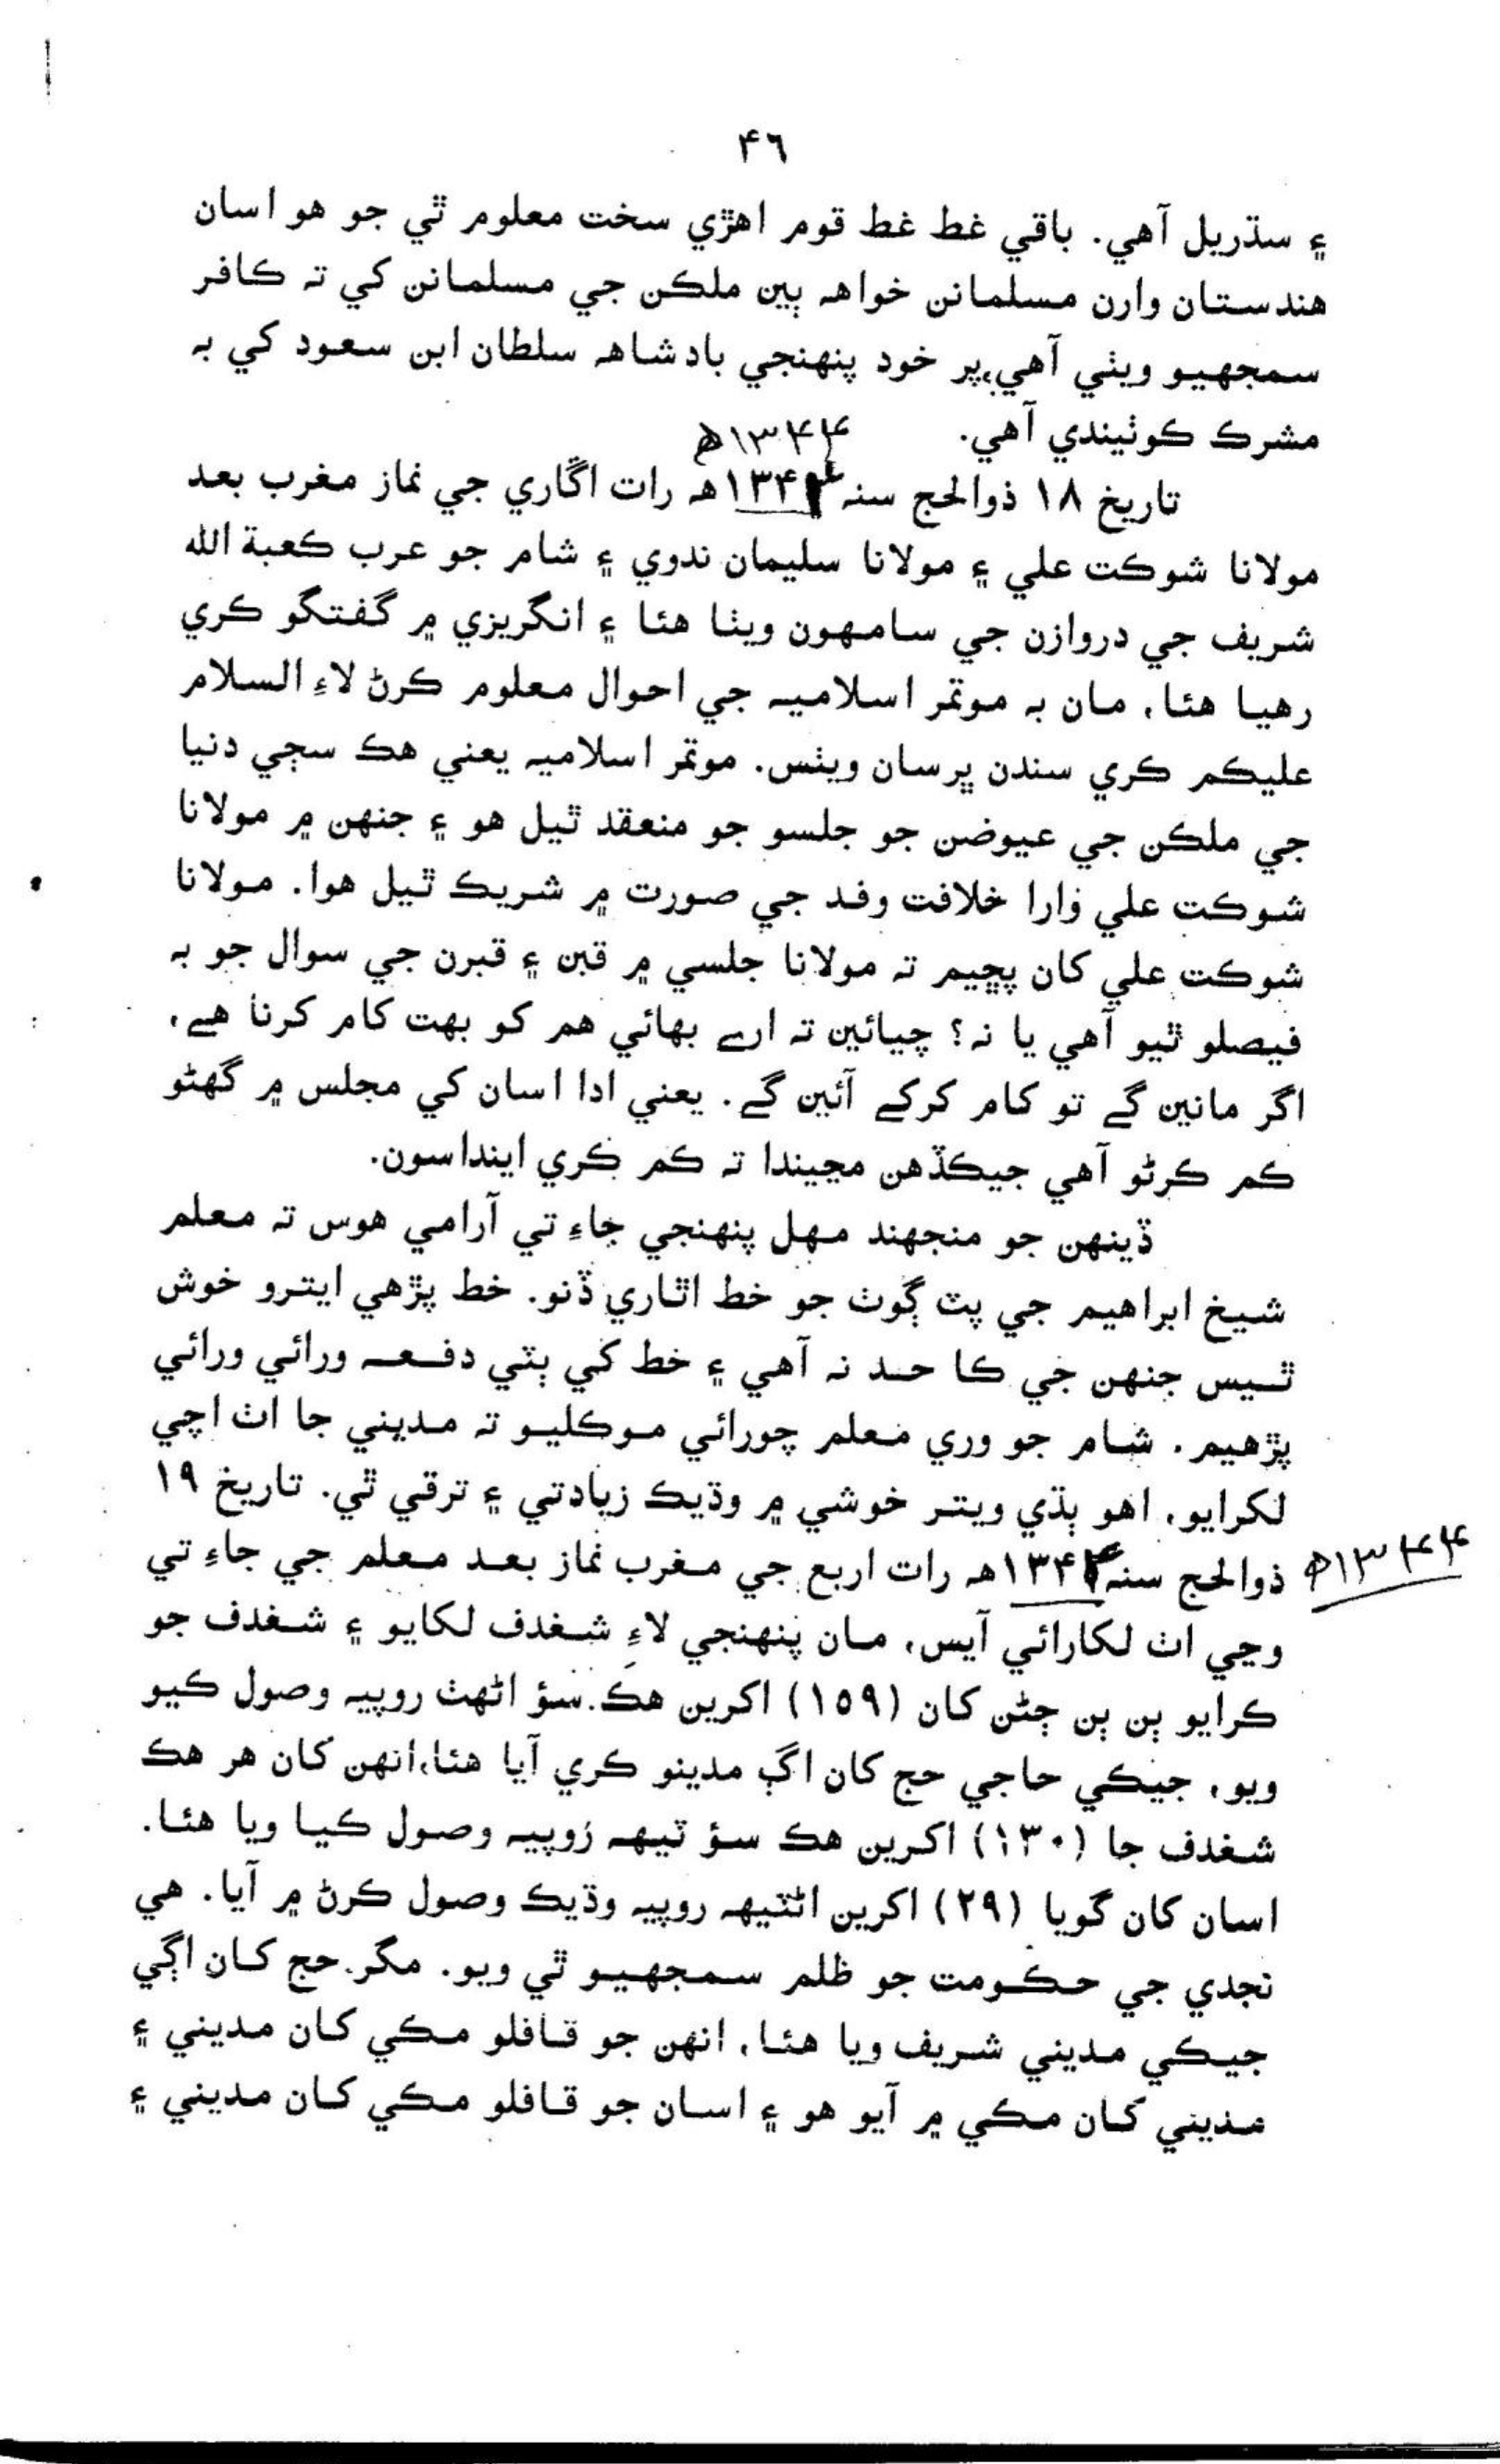 ۴٦
۽ سڌريل آهي. باقي غط غط قوم اهڙي سخت معلوم ٿي جو هو اسان
هندستان وارن مسلمانن خواهہ ٻين ملڪن جي مسلمانن کي تہ ڪافر
سمجهيو ويٺي آهي،پر خود پنهنجي بادشاهہ سلطان ابن سعود کي بہ
مشرڪ ڪوٺيندي آهي.
۱۳۴۴ھ
تاريخ ۱۸ ذوالحج سنہ ۱۳۴۴هہ رات اڱاري جي نماز مغرب بعد
مولانا شوڪت علي ۽ مولانا سليمان ندوي ۽ شام جو عرب ڪعبة الله
شريف جي دروازن جي سامهون ويٺا هئا ۽ انگريزي ۾ گفتگو ڪري
رهيا هئا، مان بہ موتمر اسلاميہ جي احوال معلوم ڪرڻ لاءِ السلام
عليڪم ڪري سندن ڀرسان ويٺس. موتمر اسلاميہ يعني هڪ سڄي دنيا
جي ملڪن جي عيوضن جو جلسو جو منعقد ٿيل هو ۽ جنهن ۾ مولانا
شوڪت علي وارا خلافت وفد جي صورت ۾ شريڪ ٿيل هوا. مولانا
شوڪت علي کان پڇيم تہ مولانا جلسي ۾ قبن ۽ قبرن جي سوال جو بہ
فيصلو ٿيو آهي يا نہ؟ چيائين تہ ارے بهائي هم کو بهت کام کرنا هے،
اگر مانين گے تو کام کرکے آئين گے. يعني ادا اسان کي مجلس ۾ گهڻو
ڪم ڪرڻو آهي جيڪڏهن مڃيندا تہ ڪم ڪري اينداسون.
ڏينهن جو منجهند مهل پنهنجي جاءِ تي آرامي هوس تہ معلم
شيخ ابراهيم جي پٽ ڳوٺ جو خط اٿاري ڏنو. خط پڙهي ايترو خوش
ٿيس جنهن جي ڪا حد نہ آهي ۽ خط کي ٻٽي دفعہ ورائي ورائي
پڙهيم. شام جو وري معلم چورائي موڪليو تہ مديني جا اٺ اچي
لکرايو، اهو ٻڌي ويتر خوشي ۾ وڌيڪ زيادتي ۽ ترقي ٿي. تاريخ ۱۹
ذوالحج سنہ ۱۳۴۴هہ رات اربع جي مغرب نماز بعد معلم جي جاءِ تي
۱۳۴۴ھ
وڃي اٺ لکارائي آيس، مان پنهنجي لاءِ شغدف لکايو ۽ شغدف جو
ڪرايو ٻن ٻن ڄڻن کان (۱۵۹) اکرين هڪ سؤ اڻهٺ روپيہ وصول ڪيو
ويو، جيڪي حاجي حج کان اڳ مدينو ڪري آيا هئا،انهن کان هر هڪ
شغدف جا (۱۳۰) اکرين هڪ سؤ ٽيهہ روپيہ وصول ڪيا ويا هئا.
اسان کان گويا (۲۹) اکرين اڻٽيهہ روپيہ وڌيڪ وصول ڪرڻ ۾ آيا. هي
نجدي جي حڪومت جو ظلم سمجهيو ٿي ويو. مگر حج کان اڳي
جيڪي مديني شريف ويا هئا، انهن جو قافلو مڪي کان مديني ۽
مديني کان مڪي ۾ آيو هو ۽ اسان جو قافلو مڪي کان مديني ۽